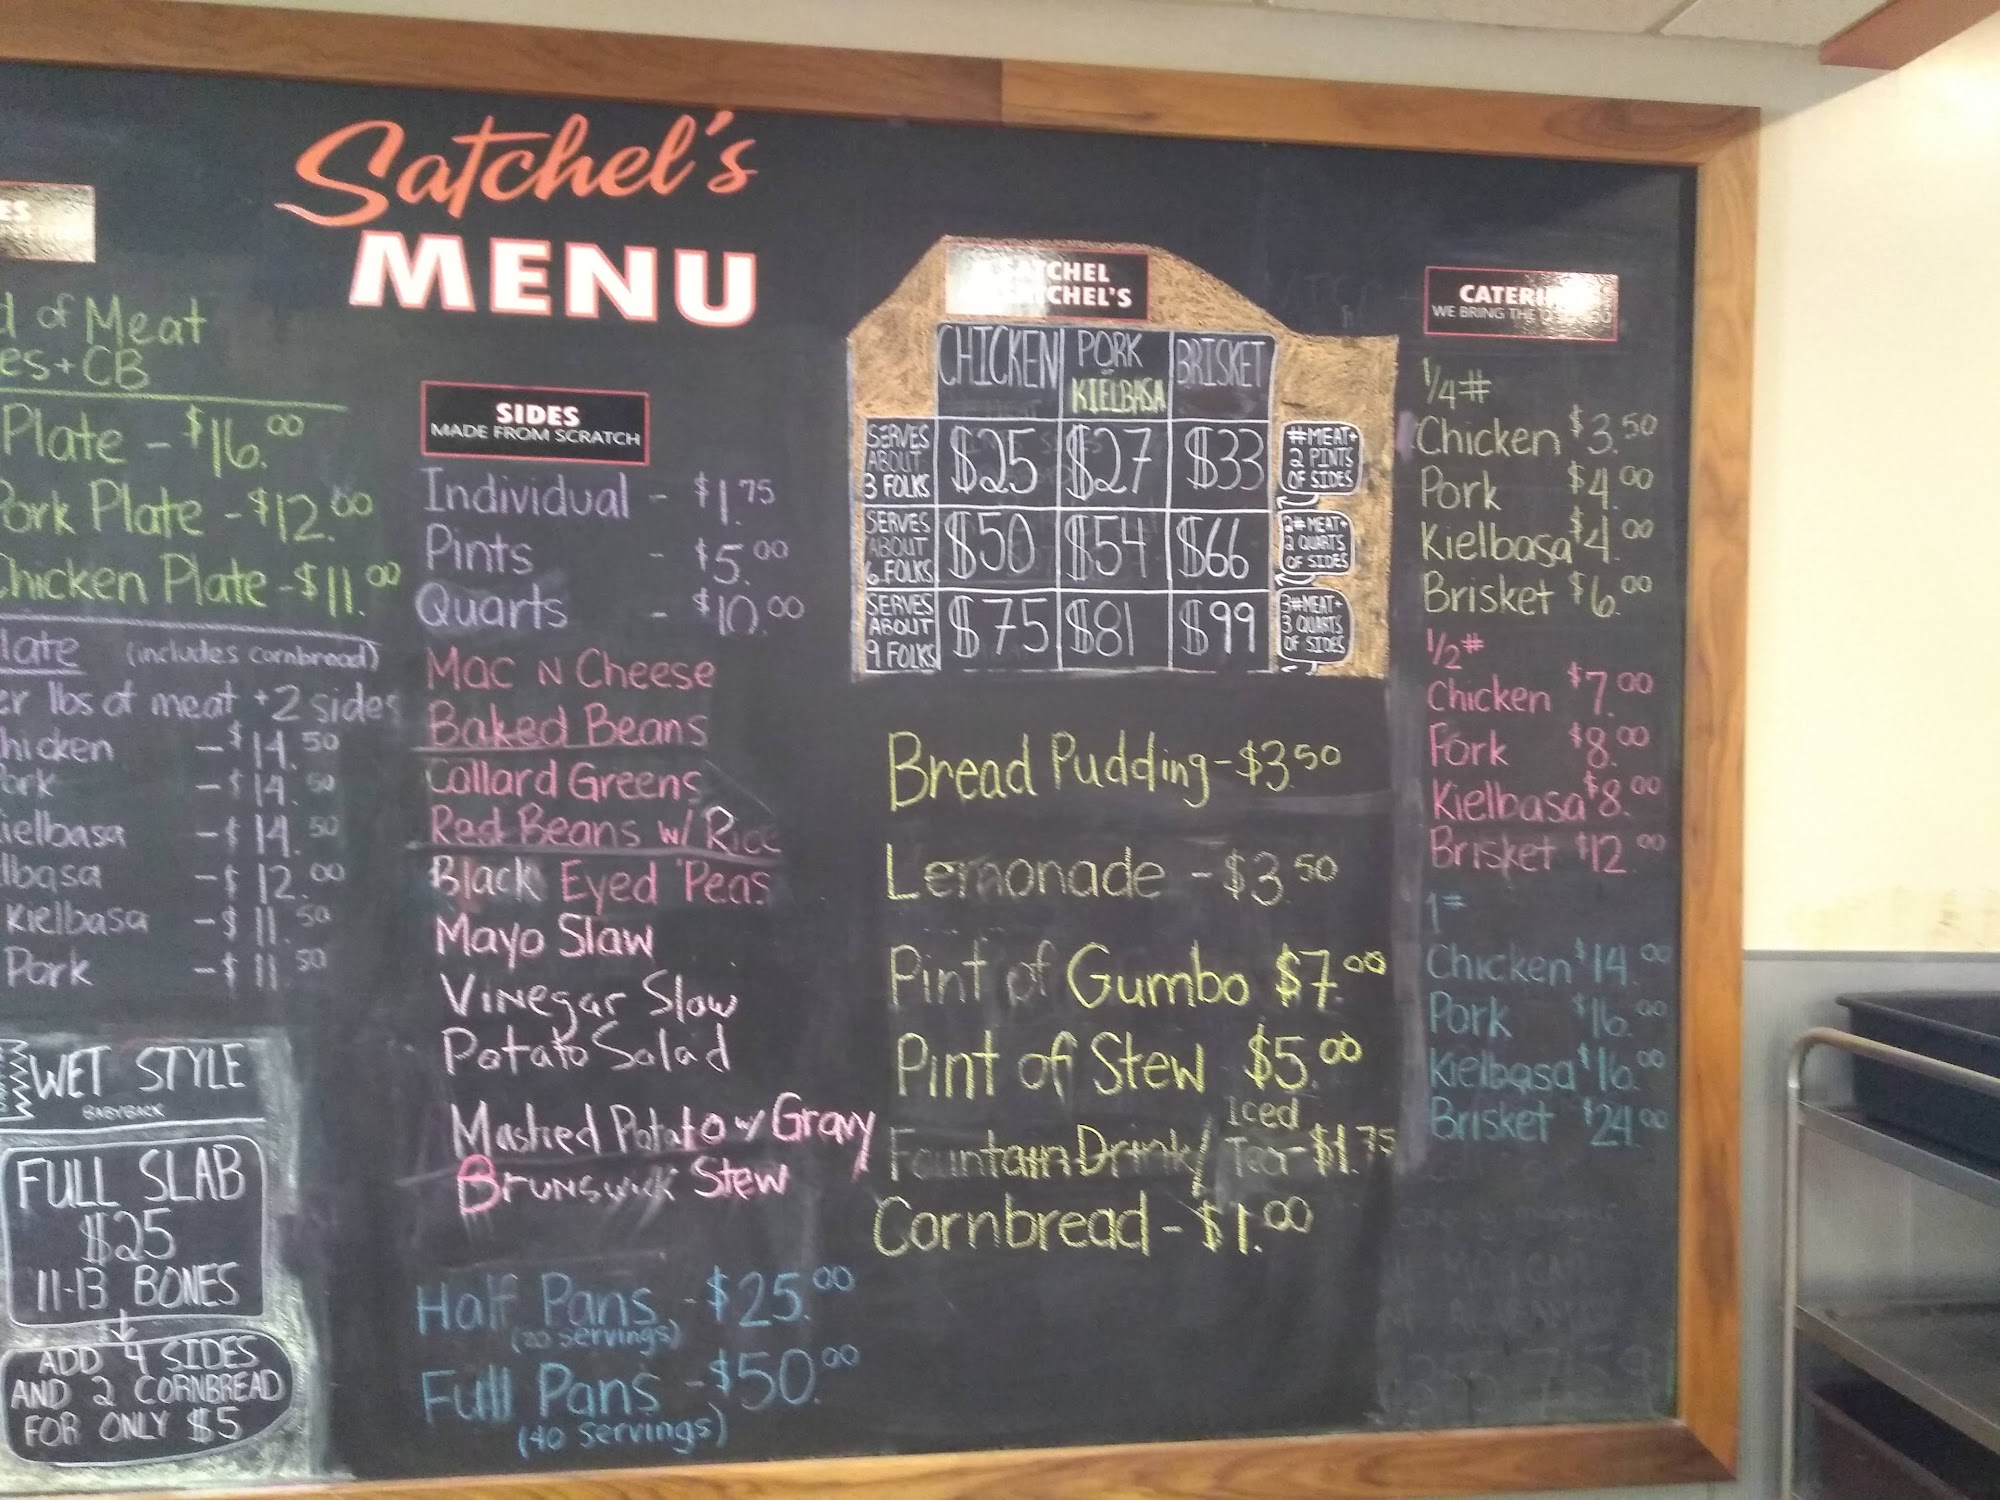 Satchel's
MENU
ES
d of Meat
es+CB
Plate - $16.00
Pork Plate - $12.00
Chicken Plate - $11.00
late (includes cornbread)
er lbs of meat + 2 sides
hicken - $14.50
ork - $14.50
ielbasa - $14.50
lbasa - $12.00
kielbasa - $11.50
Pork - $11.50
WET STYLE
BABYBACK
FULL SLAB
$25
11-13 BONES
ADD 4 SIDES
AND 2 CORNBREAD
FOR ONLY $5
SIDES
MADE FROM SCRATCH
Individual - $1.75
Pints - $5.00
Quarts - $10.00
Mac N Cheese
Baked Beans
Collard Greens
Red Beans w/ Rice
Black Eyed Peas
Mayo Slaw
Vinegar Slaw
Potato Salad
Mashed Potato w/ Gravy
Brunswick Stew
Half Pans - $25.00
(20 servings)
Full Pans - $50.00
(40 servings)
SATCHEL
SATCHEL'S
CHICKEN PORK or KIELBASA BRISKET
SERVES ABOUT 3 FOLKS $25 $27 $33 #MEAT+ 2 PINTS OF SIDES
SERVES ABOUT 6 FOLKS $50 $54 $66 2#MEAT+ 2 QUARTS OF SIDES
SERVES ABOUT 9 FOLKS $75 $81 $99 3#MEAT+ 3 QUARTS OF SIDES
Bread Pudding - $3.50
Lemonade - $3.50
Pint of Gumbo $7.00
Pint of Stew $5.00
Fountain Drink / Iced Tea - $1.75
Cornbread - $1.00
CATERING
WE BRING THE
1/4#
Chicken $3.50
Pork $4.00
Kielbasa $4.00
Brisket $6.00
1/2#
Chicken $7.00
Pork $8.00
Kielbasa $8.00
Brisket $12.00
1#
Chicken $14.00
Pork $16.00
Kielbasa $16.00
Brisket $24.00